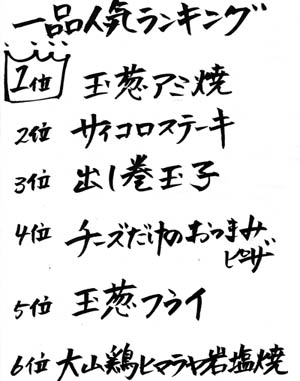 一品人気ランキング
1位 玉葱アミ焼
2位 サイコロステーキ
3位 出し巻玉子
4位 チーズだけのおつまみ
ピザ
5位 玉葱フライ
6位 大山鶏ヒマラヤ岩塩焼